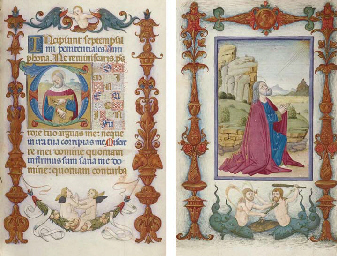 Incipiunt septem psal
mi penitentiales. Am
phona. Ne reminiscaris. ps
D
rore tuo arguas me: neque
in ira tua corripias me. Misere
re mei domine quoniam
infirmus sum: sana me do
mine: quoniam conturba